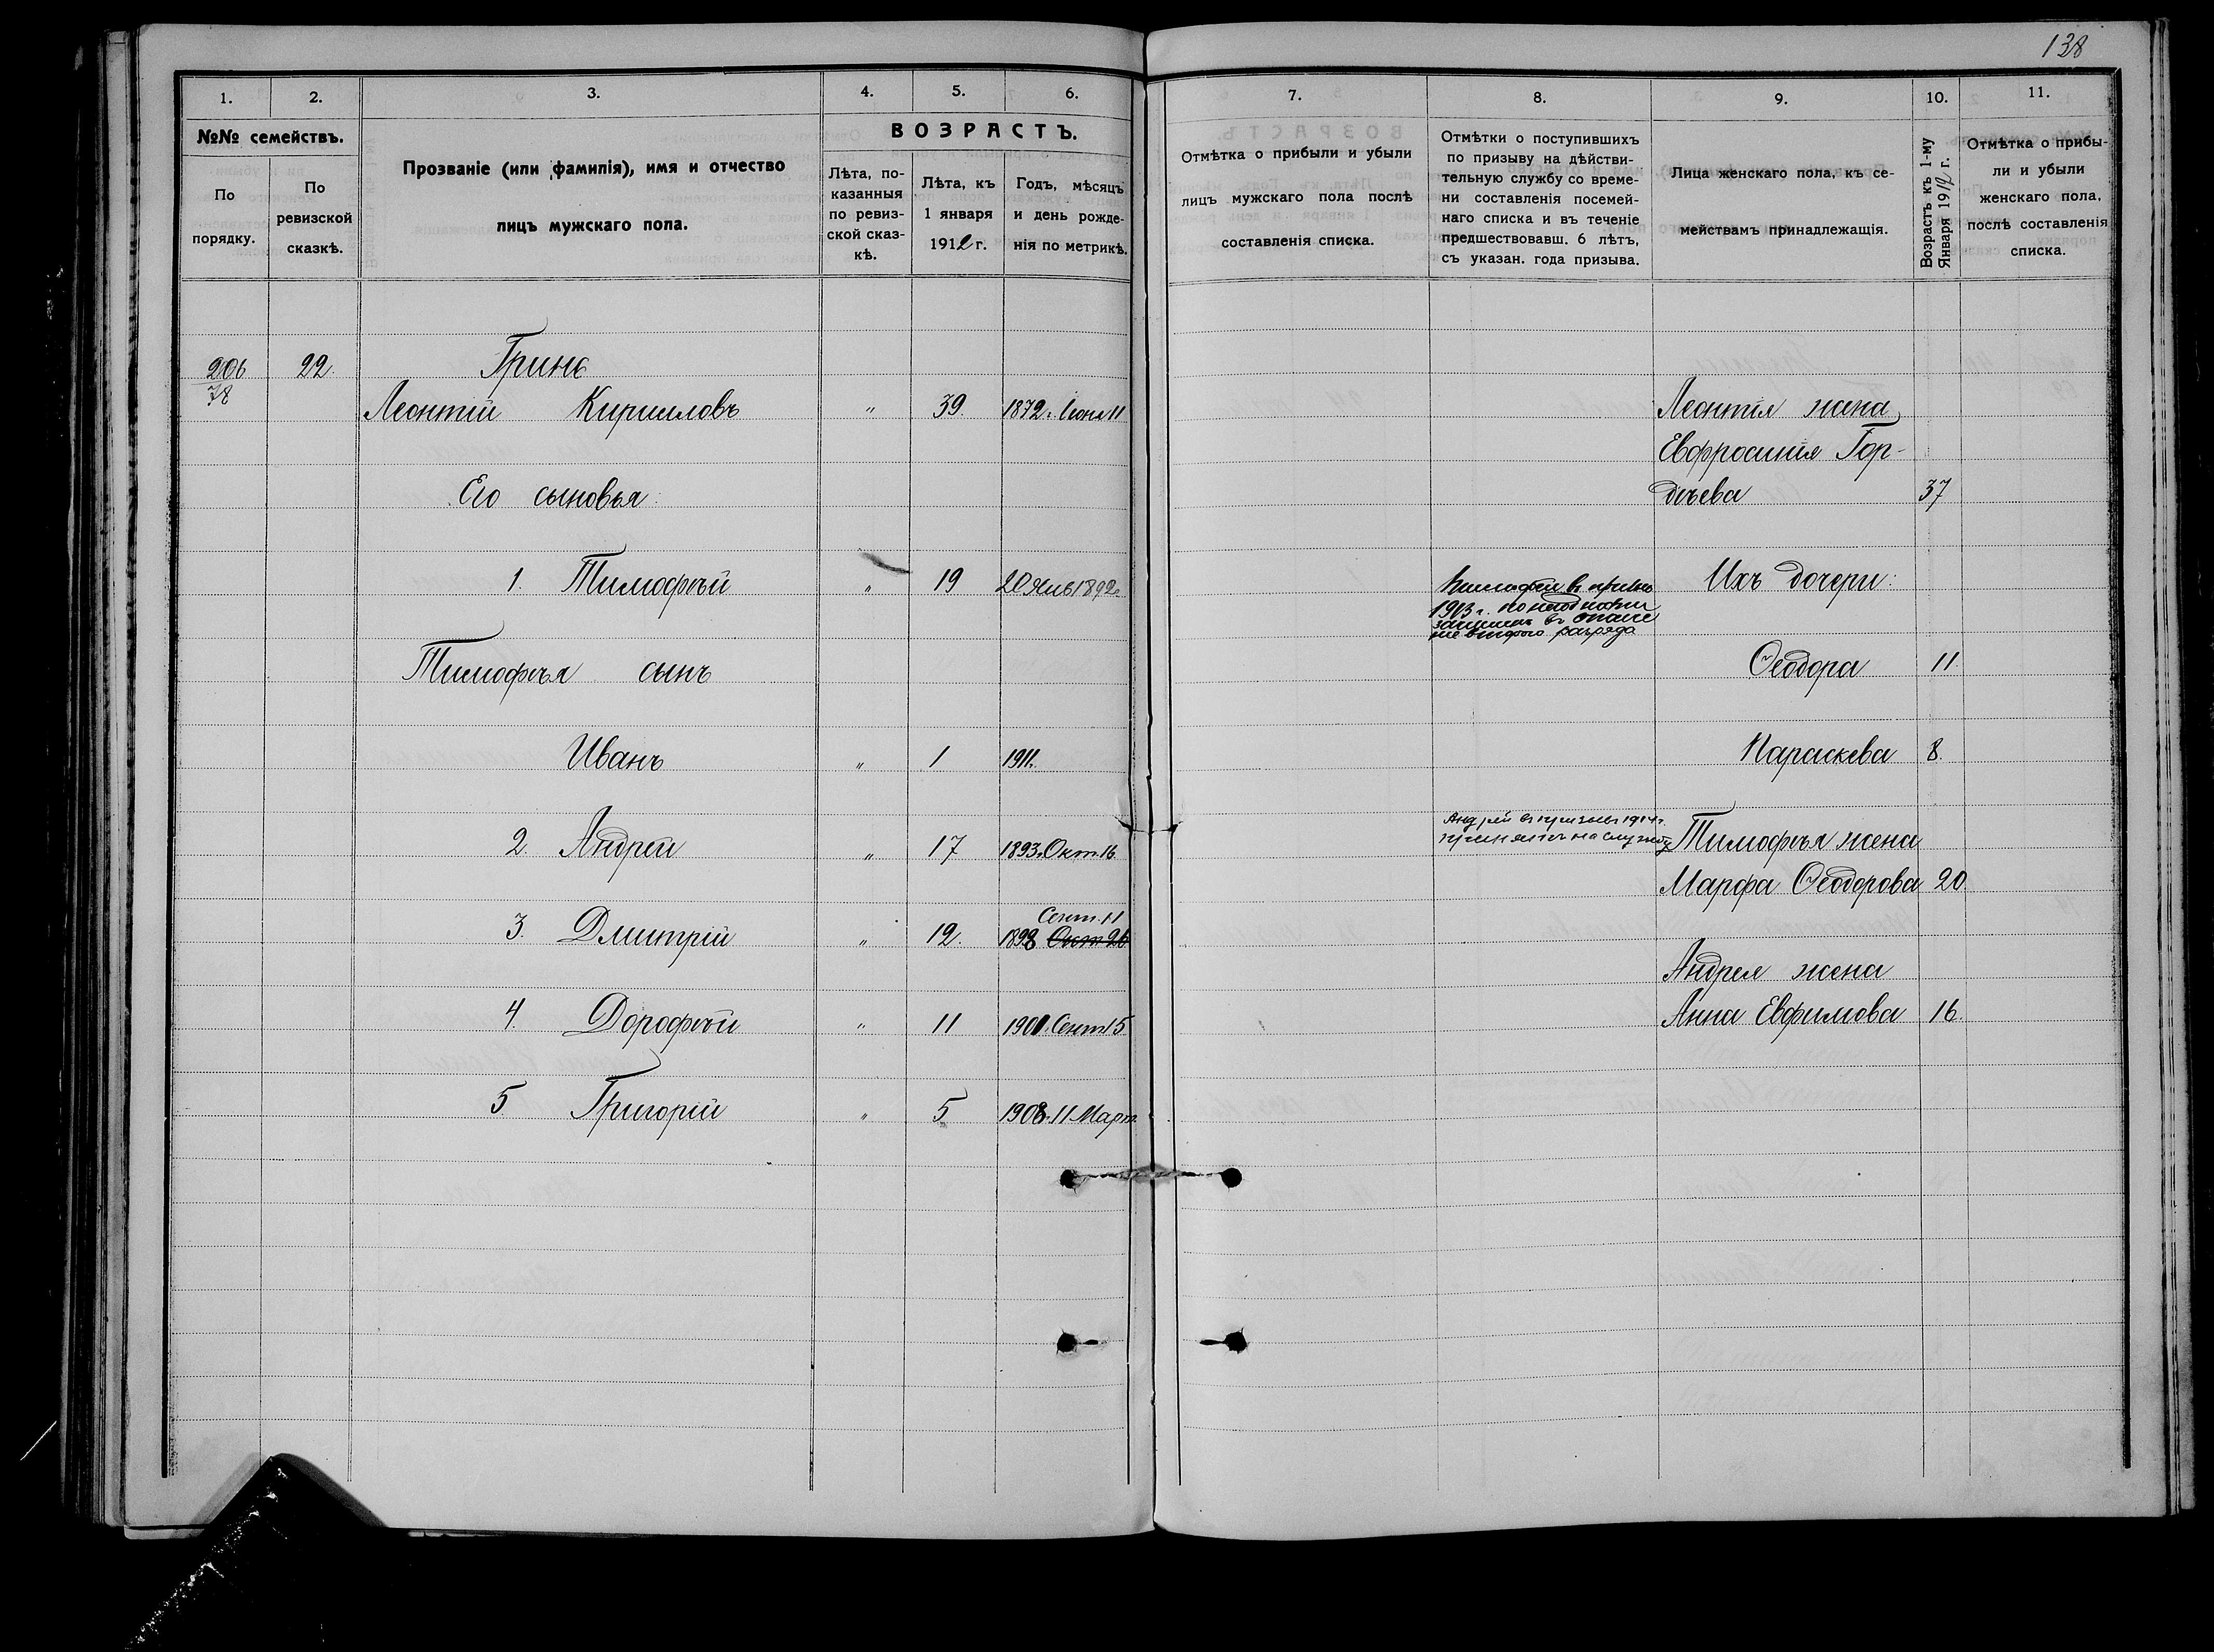 138
1. 2. 3. 4. 5. 6.
№№ семействъ.
По порядку.
По ревизской сказкѣ.
Прозваніе (или фамилія), имя и отчество
лицъ мужскаго пола.
ВОЗРАСТЪ.
Лѣта, по-
казанныя
по ревиз-
ской сказ-
кѣ.
Лѣта, къ
1 января
1912 г.
Годъ, мѣсяцъ
и день рожде-
нія по метрикѣ.
206 22. Гринь
78
Леонтій Кирилловъ " 39 1872 г. Іюня 11
Его сыновья:
1. Тимофѣй " 19 20 Янв 1892 г.
Тимофѣя сынъ
Иванъ " 1 1911 г.
2. Андрей " 17 1893 г. Окт. 16
Сент. 11
3. Дмитрій " 12. 1898 Окт 26
4. Дорофѣй " 11 1901 Сент 15
5 Григорій " 5 1908 г. 11 Март.
7. 8. 9. 10. 11.
Отмѣтка о прибыли и убыли
лицъ мужскаго пола послѣ
составленія списка.
Отмѣтки о поступившихъ
по призыву на дѣйстви-
тельную службу со време-
ни составленія посемей-
наго списка и въ теченіе
предшествовавш. 6 лѣтъ,
съ указан. года призыва.
Лица женскаго пола, къ се-
мействамъ принадлежащія.
Возрастъ къ 1-му
Января 1912 г.
Отмѣтка о прибы-
ли и убыли
женскаго пола,
послѣ составленія
списка.
Леонтія жена
Евфросинія Гор-
діева 37
Тимофей в призыв
1913 г.
второго разряда
Ихъ дочери:
Ѳеодора 11.
Параскева 8.
Андрей в призывъ 1914 г.
принятъ на службу
Тимофѣя жена
Марфа Ѳеодорова 20
Андрея жена
Анна Евфимова 16.